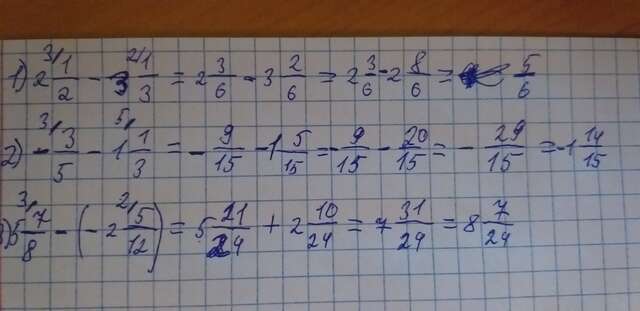 1) 2 3/ 1/2 - 3 2/ 1/3 = 2 3/6 - 3 2/6 = 2 3/6 - 2 8/6 = 5/6
2) - 3/ 3/5 - 1 5/ 1/3 = - 9/15 - 1 5/15 = - 9/15 - 20/15 = - 29/15 = -1 14/15
) 5 3/ 7/8 - (- 2 2/ 5/12) = 5 21/24 + 2 10/24 = 7 31/24 = 8 7/24